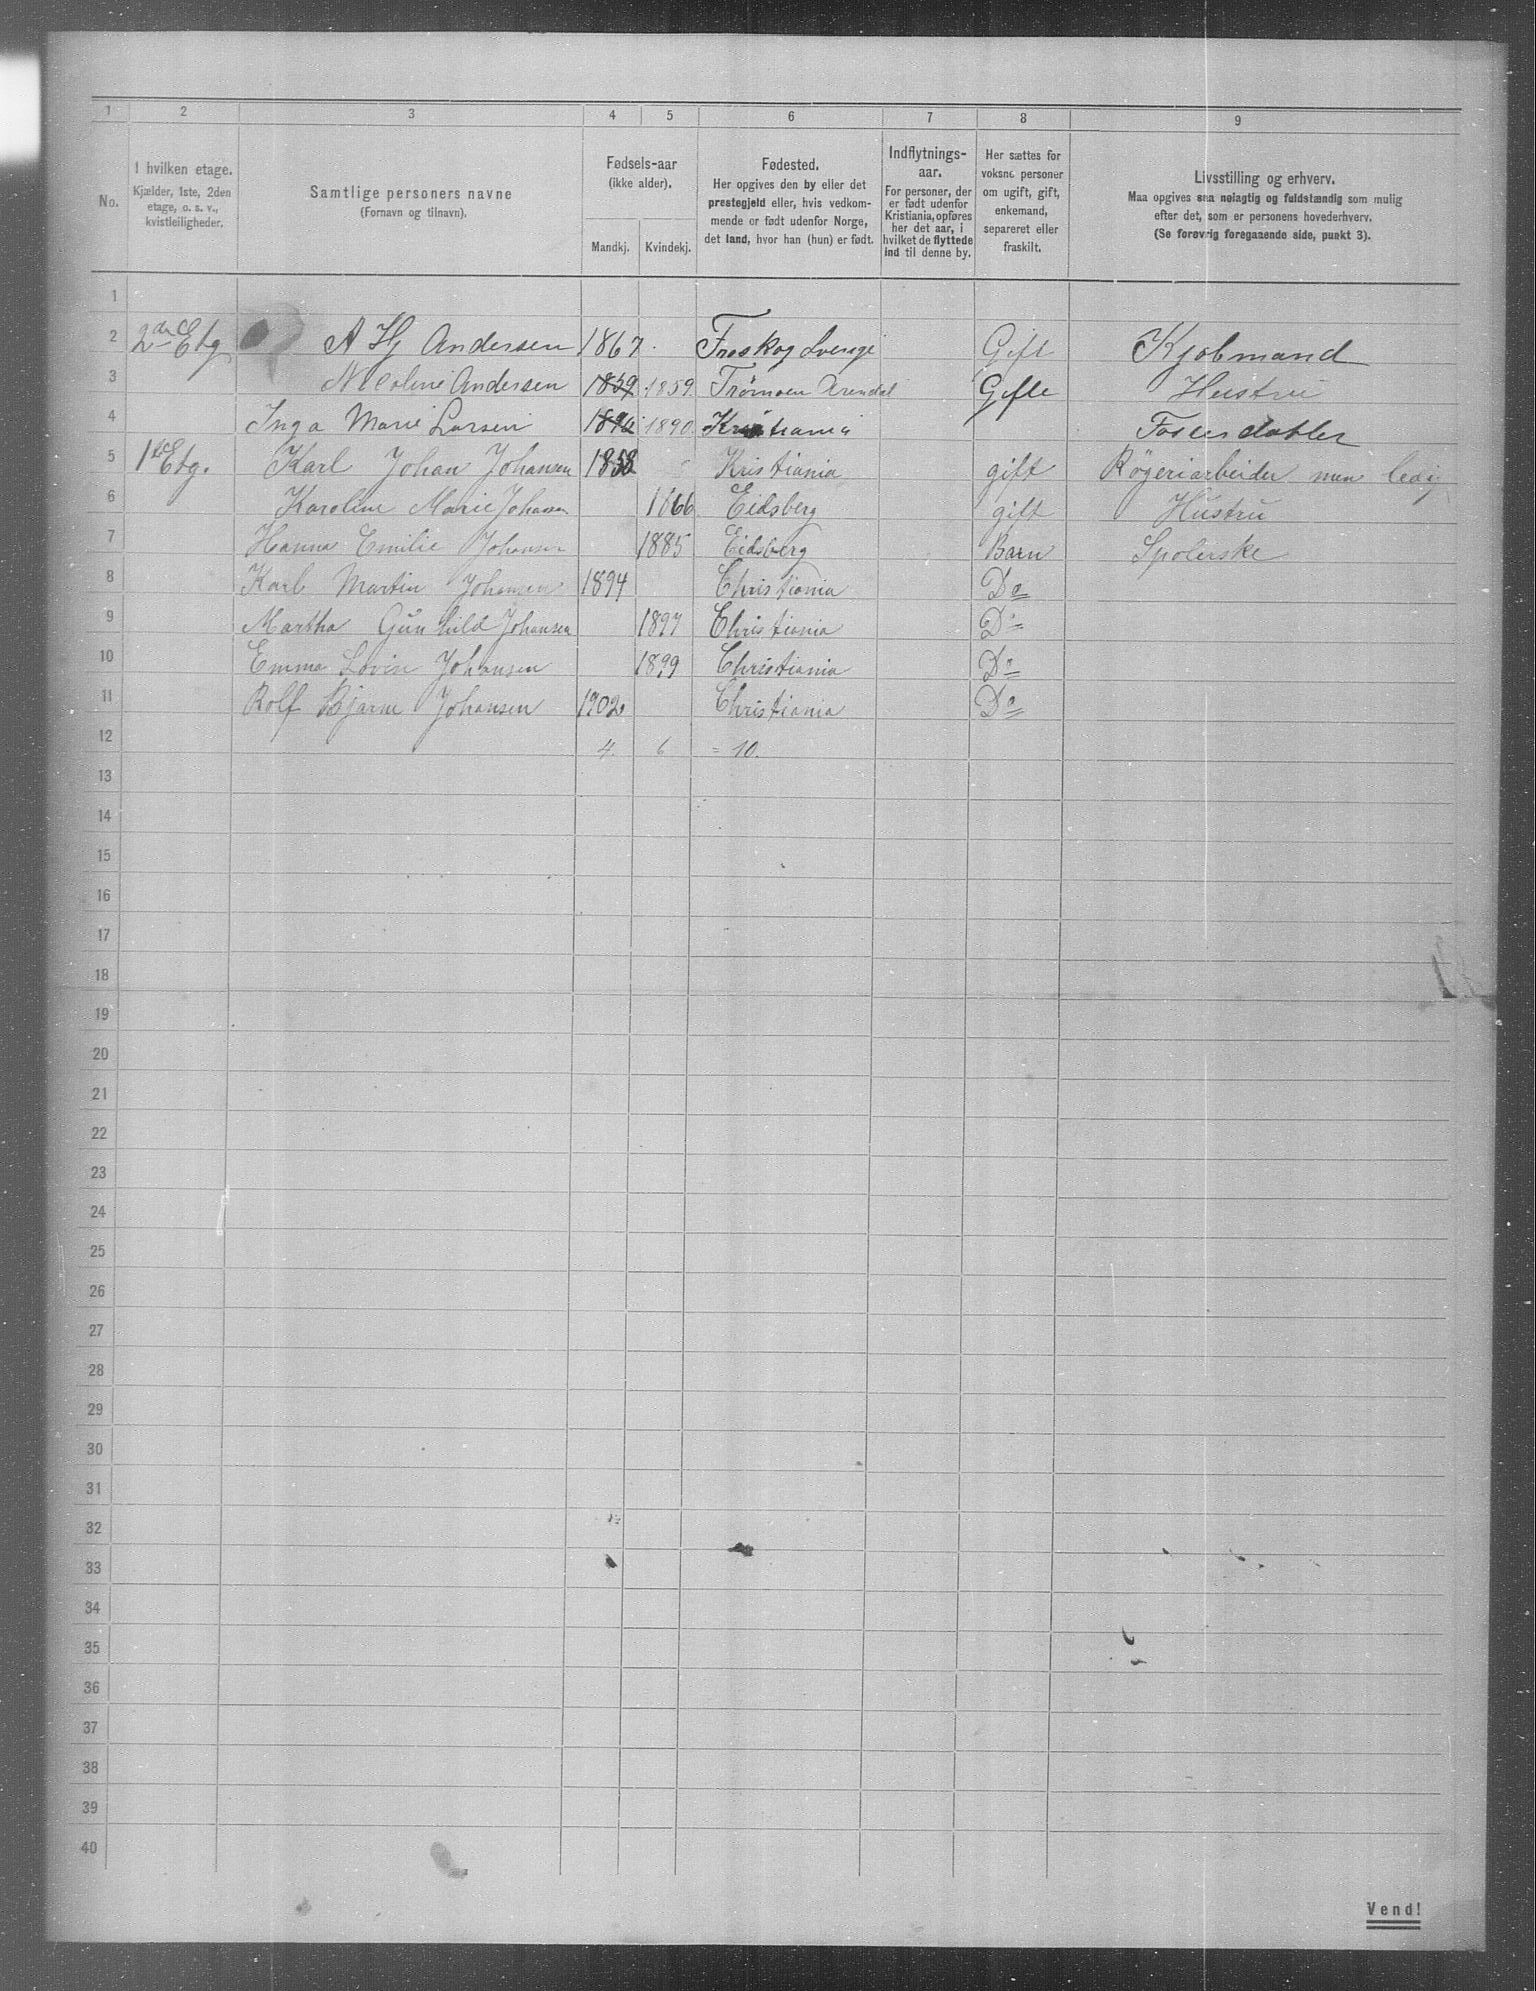 1 2 3 4 5 6 7 8 9
No.
I hvilken etage.
Kjælder, 1ste, 2den
etage, o. s. v.,
kvistleiligheder.
Samtlige personers navne
(Fornavn og tilnavn).
Fødsels-aar
(ikke alder).
Mandkj. Kvindekj.
Fødested.
Her opgives den by eller det
prestegjeld eller, hvis vedkom-
mende er født udenfor Norge,
det land, hvor han (hun) er født.
Indflytnings-
aar.
For personer, der
er født udenfor
Kristiania, opføres
her det aar, i
hvilket de flyttede
ind til denne by.
Her sættes for
voksne personer
om ugift, gift,
enkemand,
separeret eller
fraskilt.
Livsstilling og erhverv.
Maa opgives saa nøiagtig og fuldstændig som mulig
efter det, som er personens hovederhverv.
(Se forøvrig foregaaende side, punkt 3).
1
2 2den Etg A Hj Andersen 1867 Froskog Sverige Gift Kjobmand
3 Nicoline Andersen 1859 1859 Trømoen Arendal Gifte Hustru
4 Inga Marie Larsen 1890 1890 Kristiania Fosterdatter
5 1ste Etg. Karl Johan Johansen 1858 Kristiania gift Røgeriarbeider men ledig
6 Karoline Marie Johansen 1866 Eidsberg gift Hustru
7 Hanna Emilie Johansen 1885 Eidsberg Barn Spolerske
8 Karl Martin Johansen 1894 Christiania Do
9 Martha Gunhild Johansen 1897 Christiania Do
10 Emma Lovise Johansen 1899 Christiania Do
11 Rolf Bjarne Johansen 1902 Christiania Do
12 4. 6 = 10.
13
14
15
16
17
18
19
20
21
22
23
24
25
26
27
28
29
30
31
32
33
34
35
36
37
38
39
40
Vend!